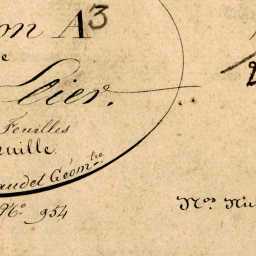 on A3
e
Lier.
Feuilles
uille.
audet Géom.tre
No. 954
Nos. Nu